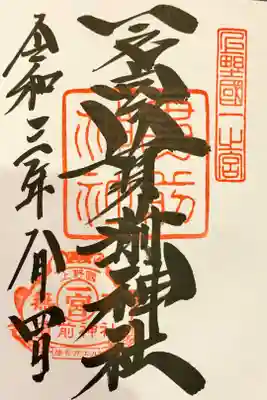 上野國一之宮
一之宮貫前神社
貫前神社
令和三年八月四日
上野國
一宮
前神社